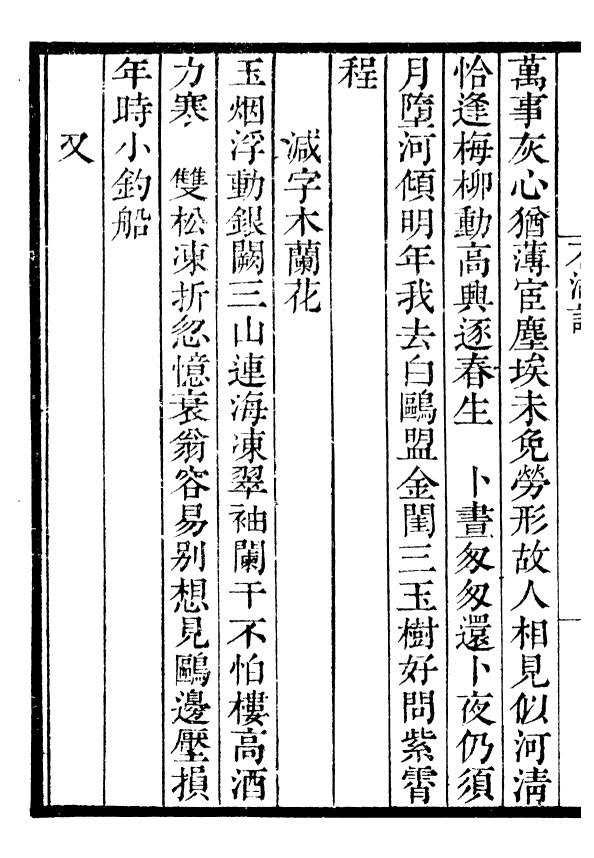 萬事灰心猶薄宦塵埃未免勞形故人相見似河清
恰逢梅柳動高興逐春生　卜晝匆匆還卜夜仍須
月墮河傾明年我去白鷗盟金閨三玉樹好問紫霄
程
減字木蘭花
玉烟浮動銀闕三山連海凍翠袖闌干不怕樓高酒
力寒　雙松凍折忽憶衰翁容易别想見鷗邊壓損
年時小釣船
又